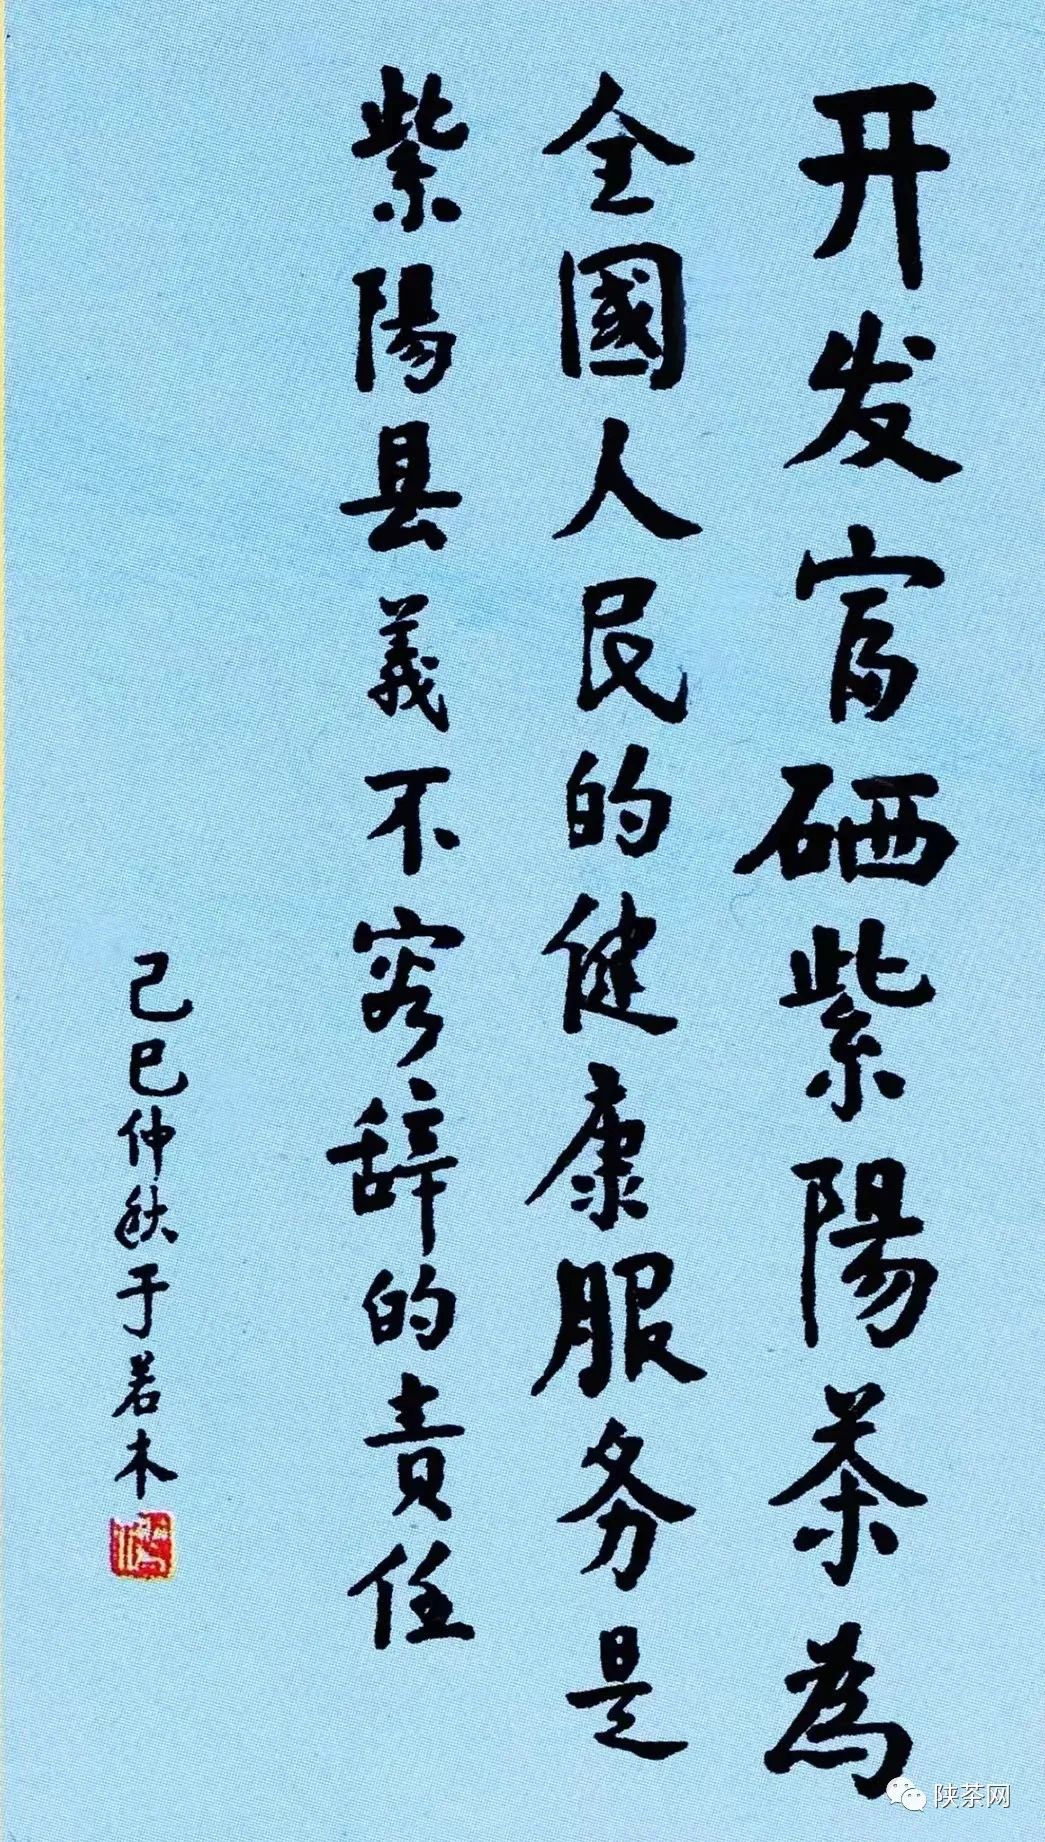 开发富硒紫陽茶為
全國人民的健康服务是
紫陽县義不容辞的責任
己巳仲秋于若木
陕茶网